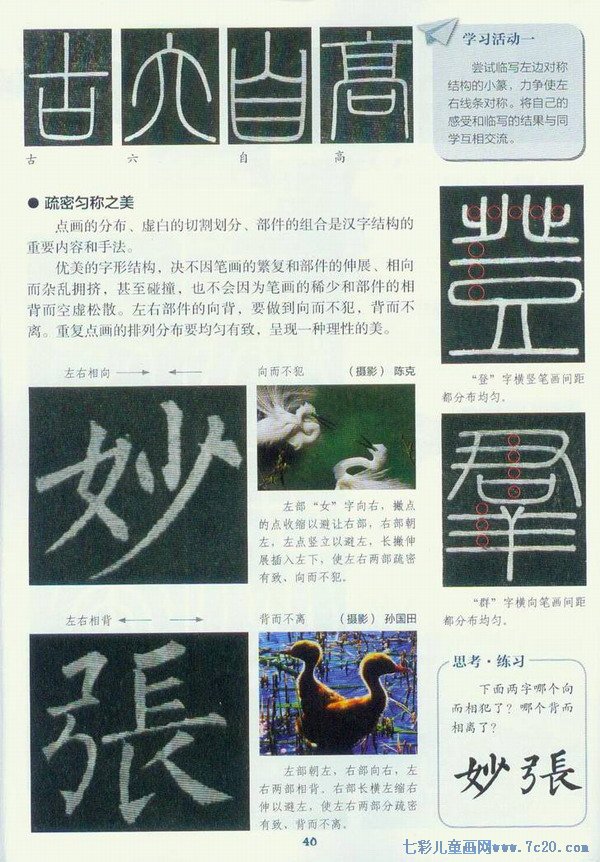 古 六 自 高
古 六 自 高
学习活动一
尝试临写左边对称
结构的小篆，力争使左
右线条对称。将自己的
感受和临写的结果与同
学互相交流。
● 疏密匀称之美
点画的分布、虚白的切割划分、部件的组合是汉字结构的
重要内容和手法。
优美的字形结构，决不因笔画的繁复和部件的伸展、相向
而杂乱拥挤，甚至碰撞，也不会因为笔画的稀少和部件的相
背而空虚松散。左右部件的向背，要做到向而不犯，背而不
离。重复点画的排列分布要均匀有致，呈现一种理性的美。
登
“登”字横竖笔画间距
都分布均匀。
左右相向
妙
向而不犯 （摄影） 陈克
左部“女”字向右，撇点
的点收缩以避让右部，右部朝
左，左点竖立以避左，长撇伸
展插入左下，使左右两部疏密
有致、向而不犯。
群
“群”字横向笔画间距
都分布均匀。
左右相背
張
背而不离 （摄影） 孙国田
左部朝左，右部向右，左
右两部相背。右部长横左缩右
伸以避左，使左右两部分疏密
有致、背而不离。
思考·练习
下面两字哪个向
而相犯了？哪个背而
相离了？
妙 張
40
七彩儿童画网www.7c20.com